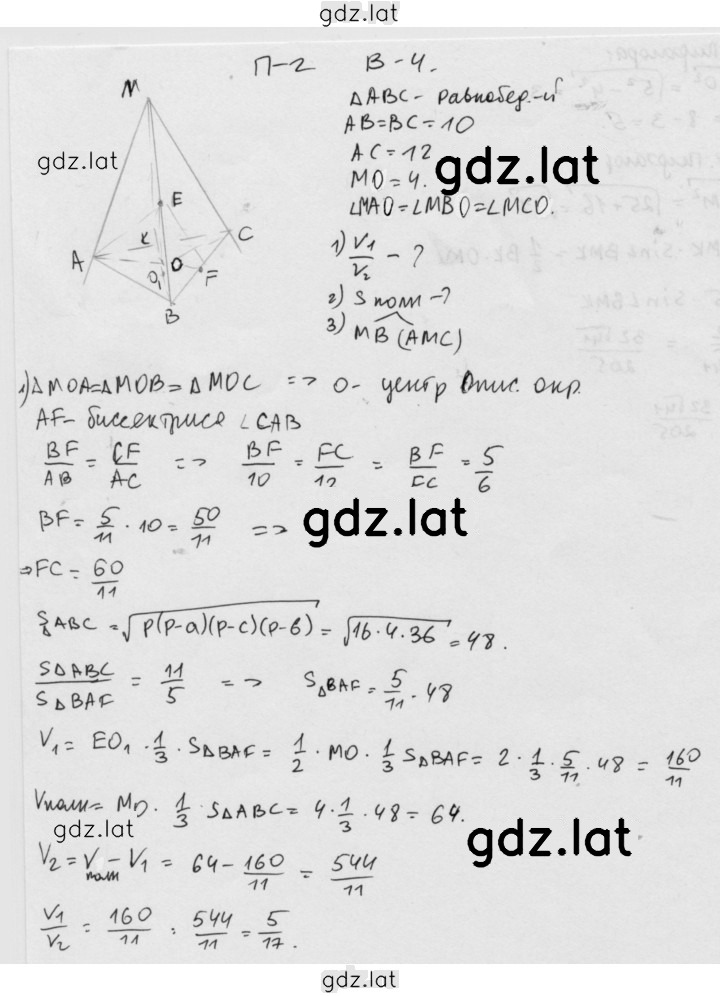 gdz.lat
П-2 В-4.
M
△ABC - равнобед.-й
AB=BC=10
gdz.lat
AC=12
gdz.lat
MO=4.
∠MAO=∠MBO=∠MCO.
E
K
C
A
O
O₁
F
B
1) V₁/V₂ - ?
2) S полн - ?
3) MB^(AMC)
1) △MOA=△MOB=△MOC => O- центр опис. окр.
AF- биссектриса ∠CAB
BF/AB = CF/AC => BF/10 = FC/12 = BF/FC = 5/6
BF = 5/11 · 10 = 50/11 =>
gdz.lat
=> FC = 60/11
S△ABC = √p(p-a)(p-c)(p-b) = √16·4·36 = 48.
S△ABC/S△BAF = 11/5 => S△BAF = 5/11 · 48
V₁ = EO₁ · 1/3 · S△BAF = 1/2 · MO · 1/3 S△BAF = 2 · 1/3 · 5/11 · 48 = 160/11
Vполн = MO · 1/3 · S△ABC = 4 · 1/3 · 48 = 64.
gdz.lat
gdz.lat
V₂ = Vполн - V₁ = 64 - 160/11 = 544/11
V₁/V₂ = 160/11 : 544/11 = 5/17.
gdz.lat